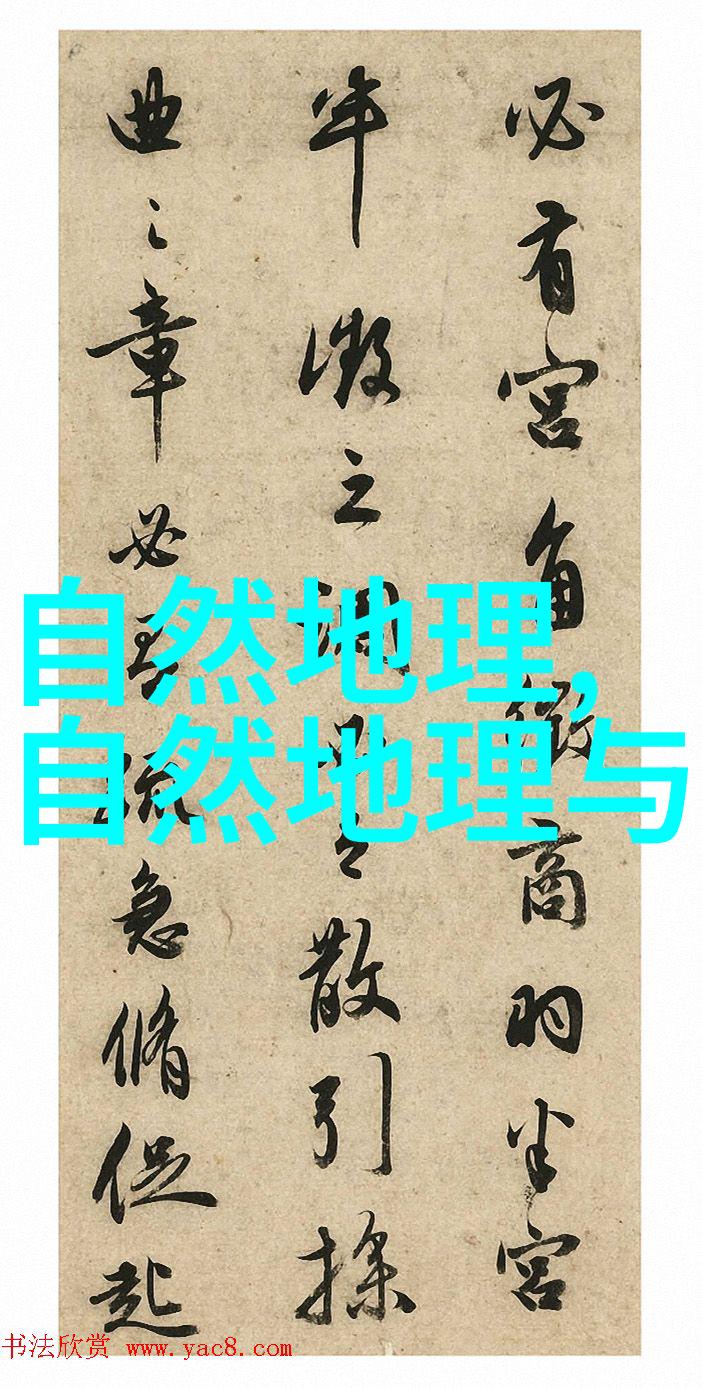 必有宮角徵商羽半宮
半徵之調散引操
曲之章必急脩促起
自然地理,
自然地理与
书法欣赏 www.yac8.com